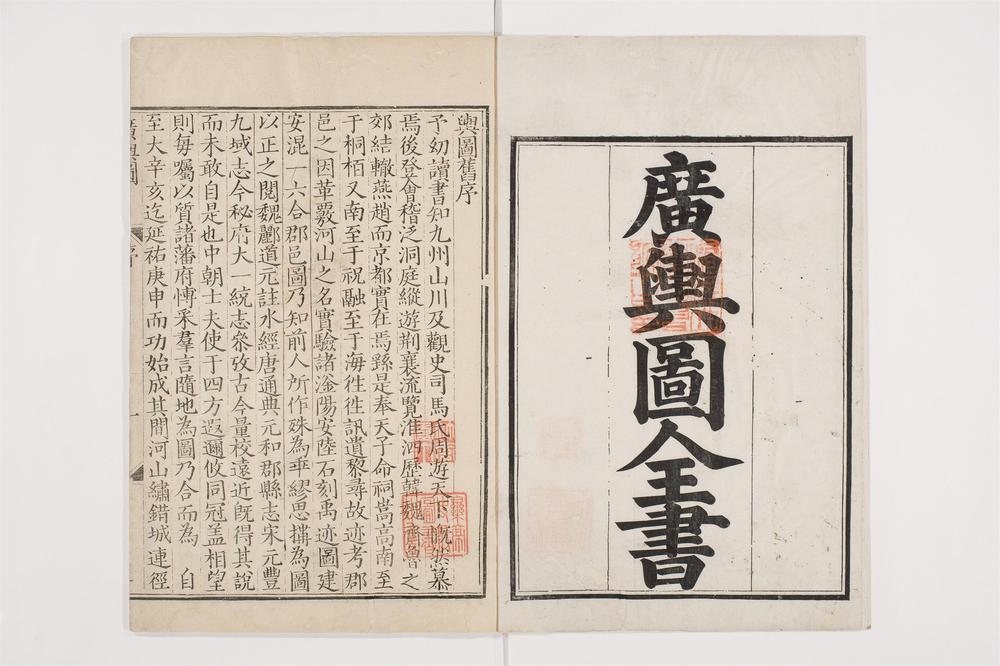 廣輿圖全書
輿圖舊序
予幼讀書知九州山川及觀史司馬氏周遊天下慨然慕
焉後登會稽泛洞庭縱遊荆襄流覽淮泗歷韓魏齊魯之
郊結轍燕趙而京都實在焉繇是奉天子命祠嵩高南至
于桐栢又南至于祝融至于海徃徃訊遺黎尋故迹考郡
邑之因革覈河山之名實驗諸滏陽安陸石刻禹迹圖建
安混一六合郡邑圖乃知前人所作殊為乖繆思搆為圖
以正之閱魏酈道元註水經唐通典元和郡縣志宋元豐
九域志今秘府大一統志叅攷古今量校遠近旣得其說
而未敢自是也中朝士夫使于四方遐邇攸同冠盖相望
則每囑以質諸藩府愽采羣言隨地為圖乃合而為 自
至大辛亥迄延祐庚申而功始成其間河山繡錯城連徑
廣輿圖
序
一